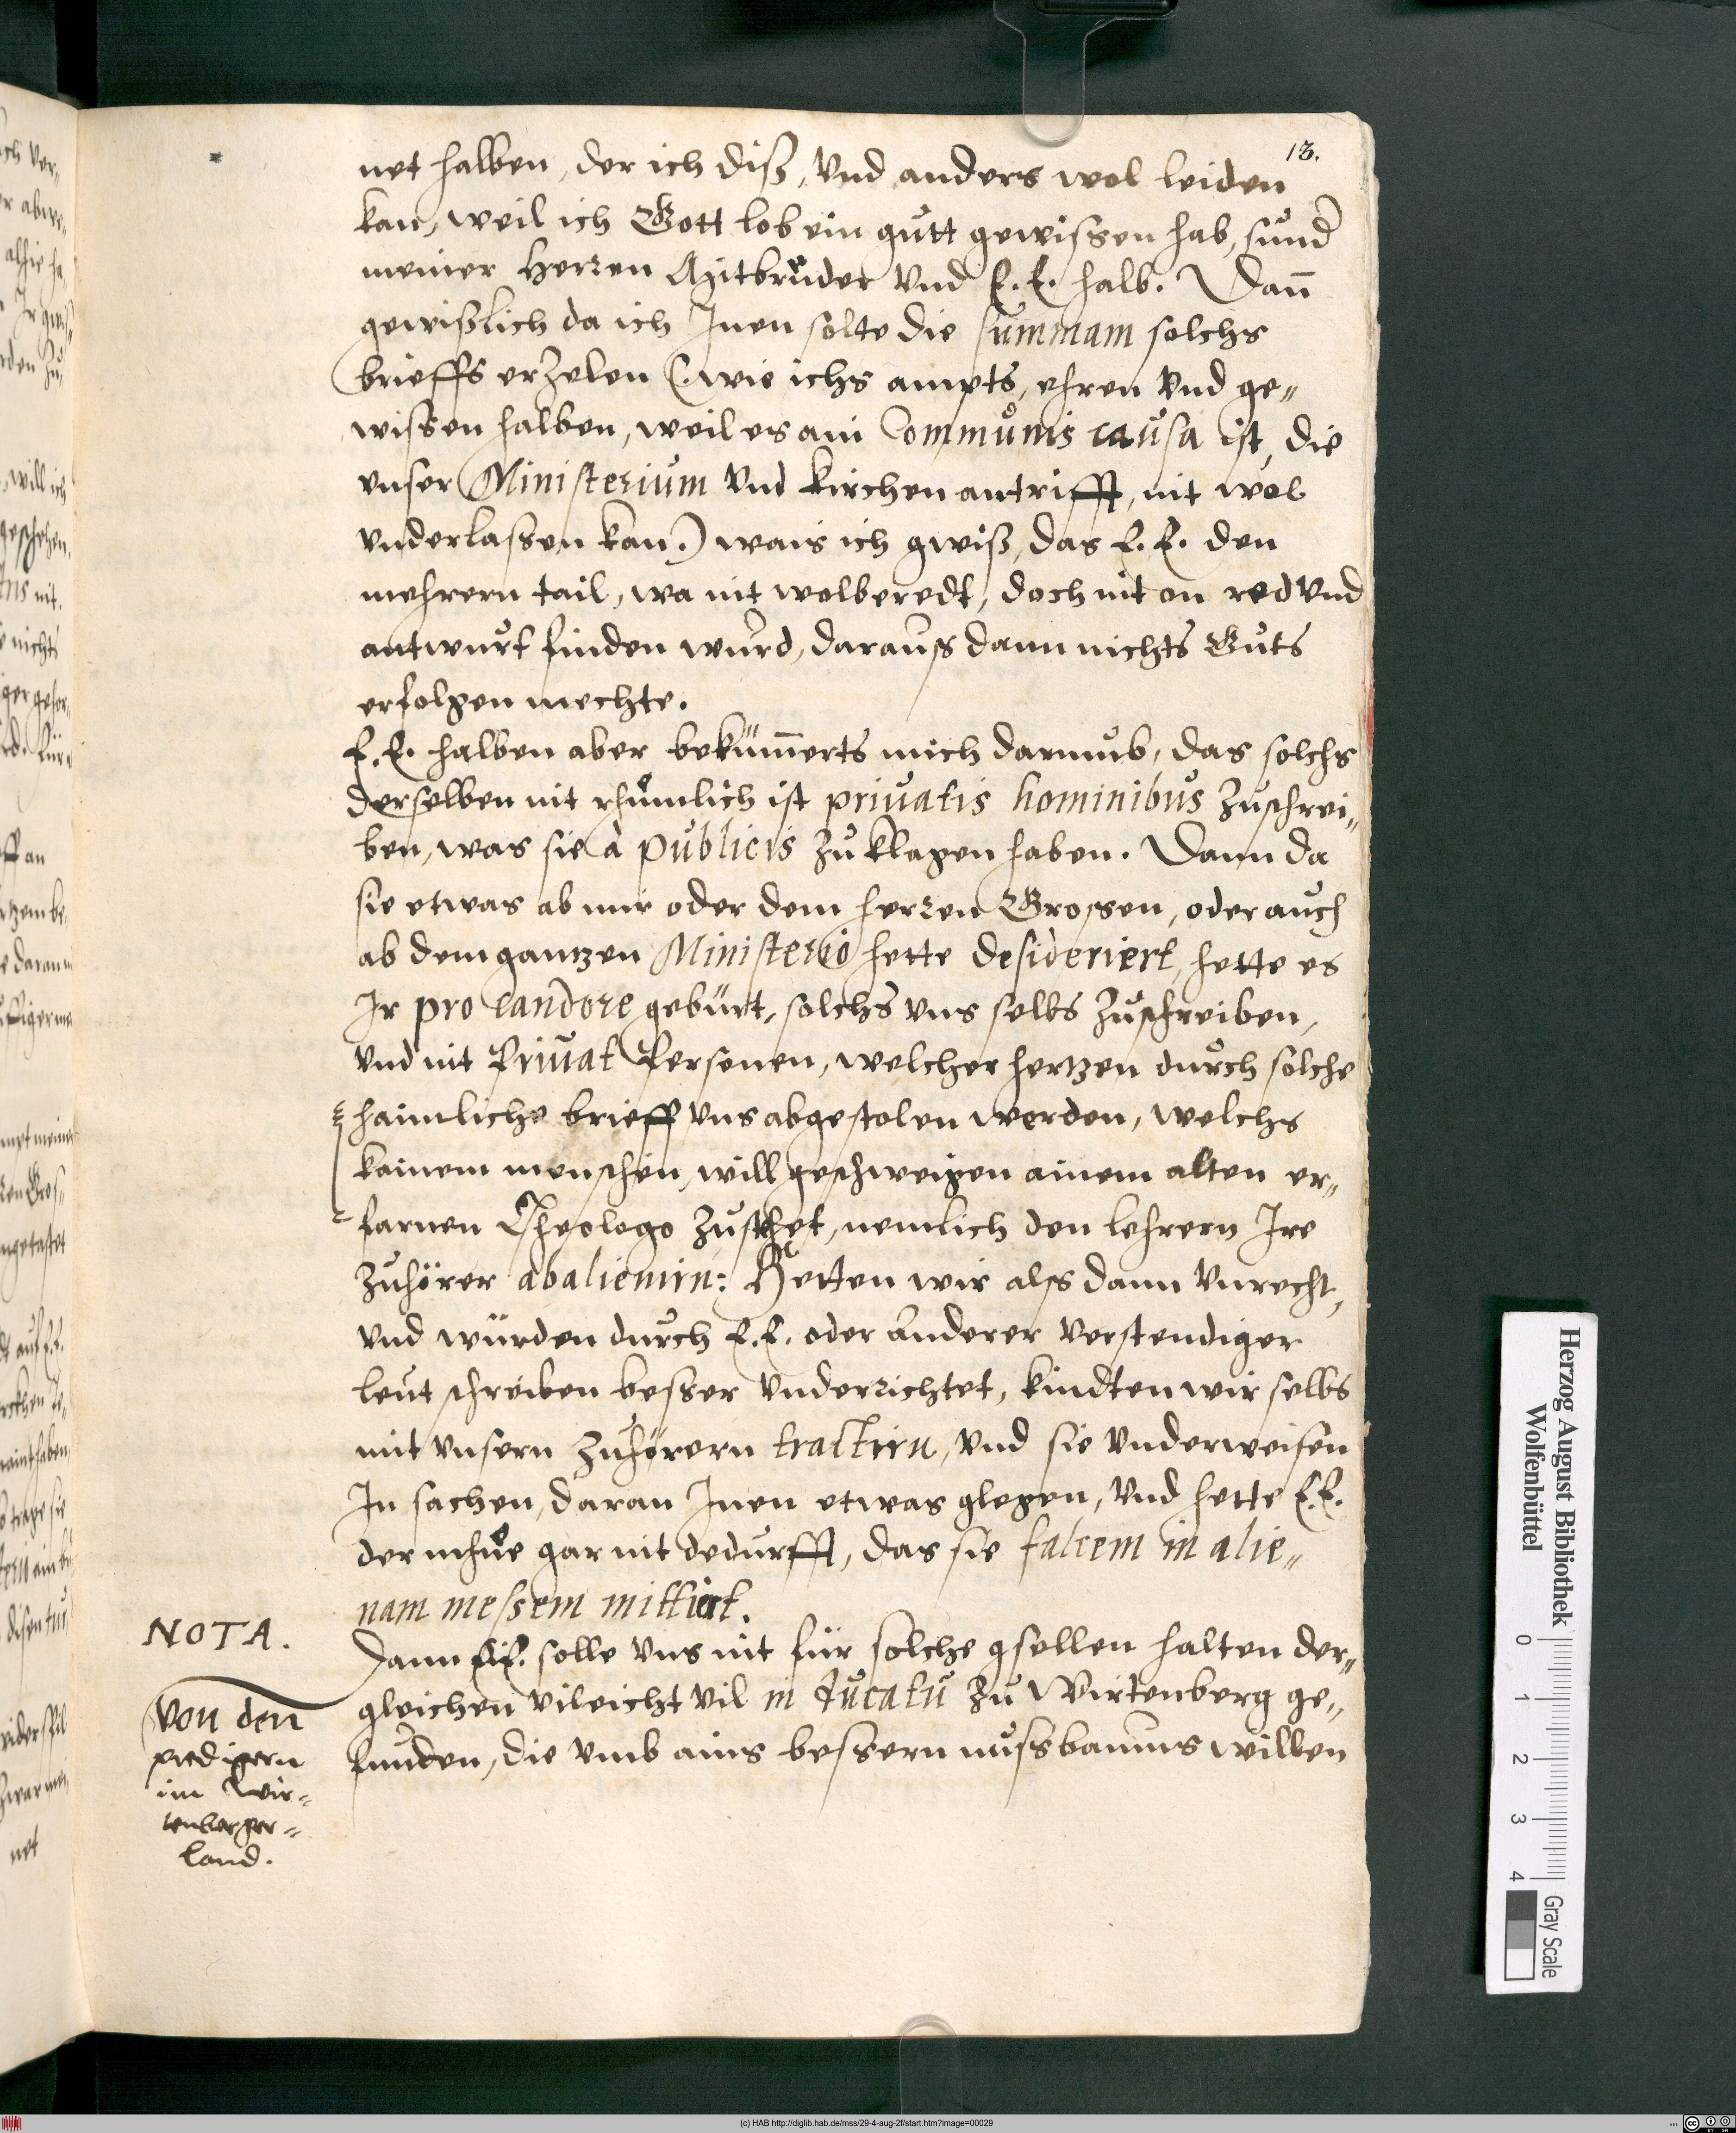 13.
net halben, der ich diß, vnd anders wol leiden
kan, weil ich Gott lob ein gůtt gewissen hab, sůnd
meiner Herren Mitbrůder vnd E. E. halb. Dañ
gewißlich da ich Jnen solte die summam solchs
brieffs erzelen (: wie ichs ampts, ehren vnd ge„
wissen halben, weil es ain Commůnis caůsa ist, die
vnser Ministeriům vnd kirchen antrifft, nit wol
vnderlassen kan.) wais ich gwiß, das E. E. den
mehrern tail, wa nit wolberedt, doch nit on red vnd
antwurt finden wurd, darauß dann nichts Gůts
erfolgen mechte.
E. E. halben aber bekům̃erts mich darumb, das solchs
derselben nit rhůmlich ist priůatis hominibůs zůschrei„
ben, was sie à půblicis zů klagen haben. Dann da
sie etwas ab mir oder dem herren Grossen, oder auch
ab dem gantzen Ministerio hette desideriert, hette es
Jr pro candore gebürt, solchs vns selbs zůschreiben,
vnd nit Priůat Personen, welcher hertzen důrch solche
haimliche brieff vns abgestolen werden, welchs
kainem menschen, will geschweigen ainem alten er„
farnen Theologo zůsthet, nemlich den lehrern Jre
zůhörer abalienirn: Hetten wir alß dann vnrecht,
vnd würden durch E. E. oder anderer verstendiger
leut schreiben besser vnderrichtet, kindten wir selbs
mit vnsern zůhörern tractirn, vnd sie vnderweisen
Jn sachen, daran Jnen etwas glegen, vnd hette E. E.
der mhůe gar nit bedurfft, das sie falcem in alie„
nam messem mittiert.
NOTA.
Dann E. E. solle vns nit für solche gsellen halten der„
gleichen vileicht vil in důcatů zů Wirtenberg ge„
funden, die vmb ains bessern nussbaums willen
Von den
predigern
im Wir„
tenberger„
land.
Herzog August Bibliothek
Wolfenbüttel
0 1 2 3 4
Gray Scale
(c) HAB http://diglib.hab.de/mss/29-4-aug-2f/start.htm?image=00029